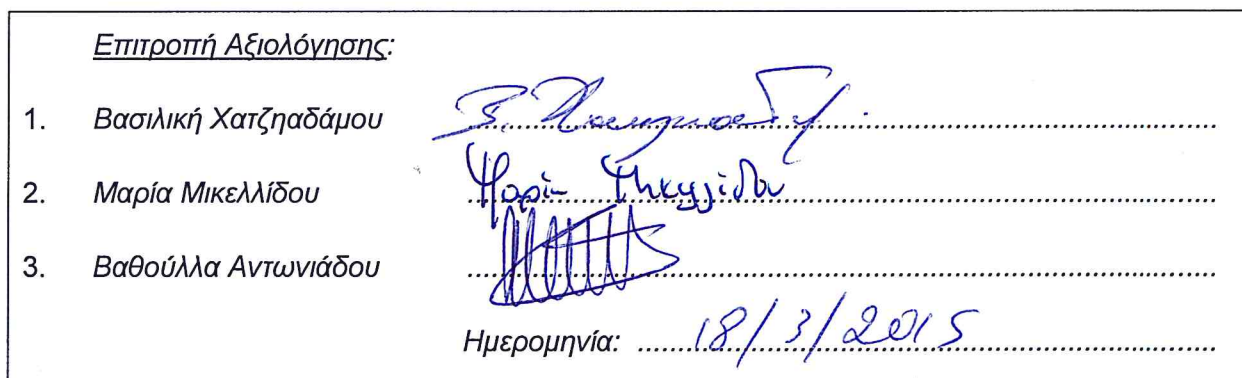 Επιτροπή Αξιολόγησης:
1. Βασιλική Χατζηαδάμου
2. Μαρία Μικελλίδου Μαρία Μικελλίδου
3. Βαθούλλα Αντωνιάδου
Ημερομηνία: 18/3/2015